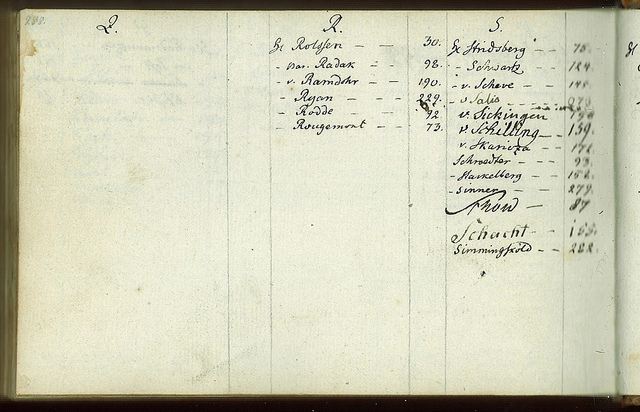 Q.
R.
S.
H Rolssen - - 30.
- Bar. Radak - - 98.
- v. Ramdohr - - 190.
- Ryan - - 229.
- Rodde - - 92
- Rougemont - - 73.
- Schwartz - - 124.
- v. Scheve - -
- v Salis - -
v. Sickingen
v Schilling - 159.
v. Skaricza - -
Schroedter - - 93.
- Hackelberg - -
- Sinner - - 279.
Thow - 87
Schacht - -
Simmingskold - - 282.